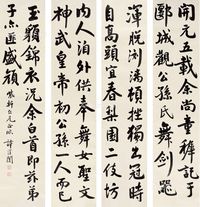 開元五載余尚童稚記于
郾城觀公孫氏舞劍器
渾脫瀏漓頓挫獨出冠時
自高頭宜春梨園二伎坊
內人洎外供奉舞女聖文
神武皇帝初公孫一人而已
玉貌錦衣況余白首即茲弟
子亦匪盛顏
仁兄正 譚延闓